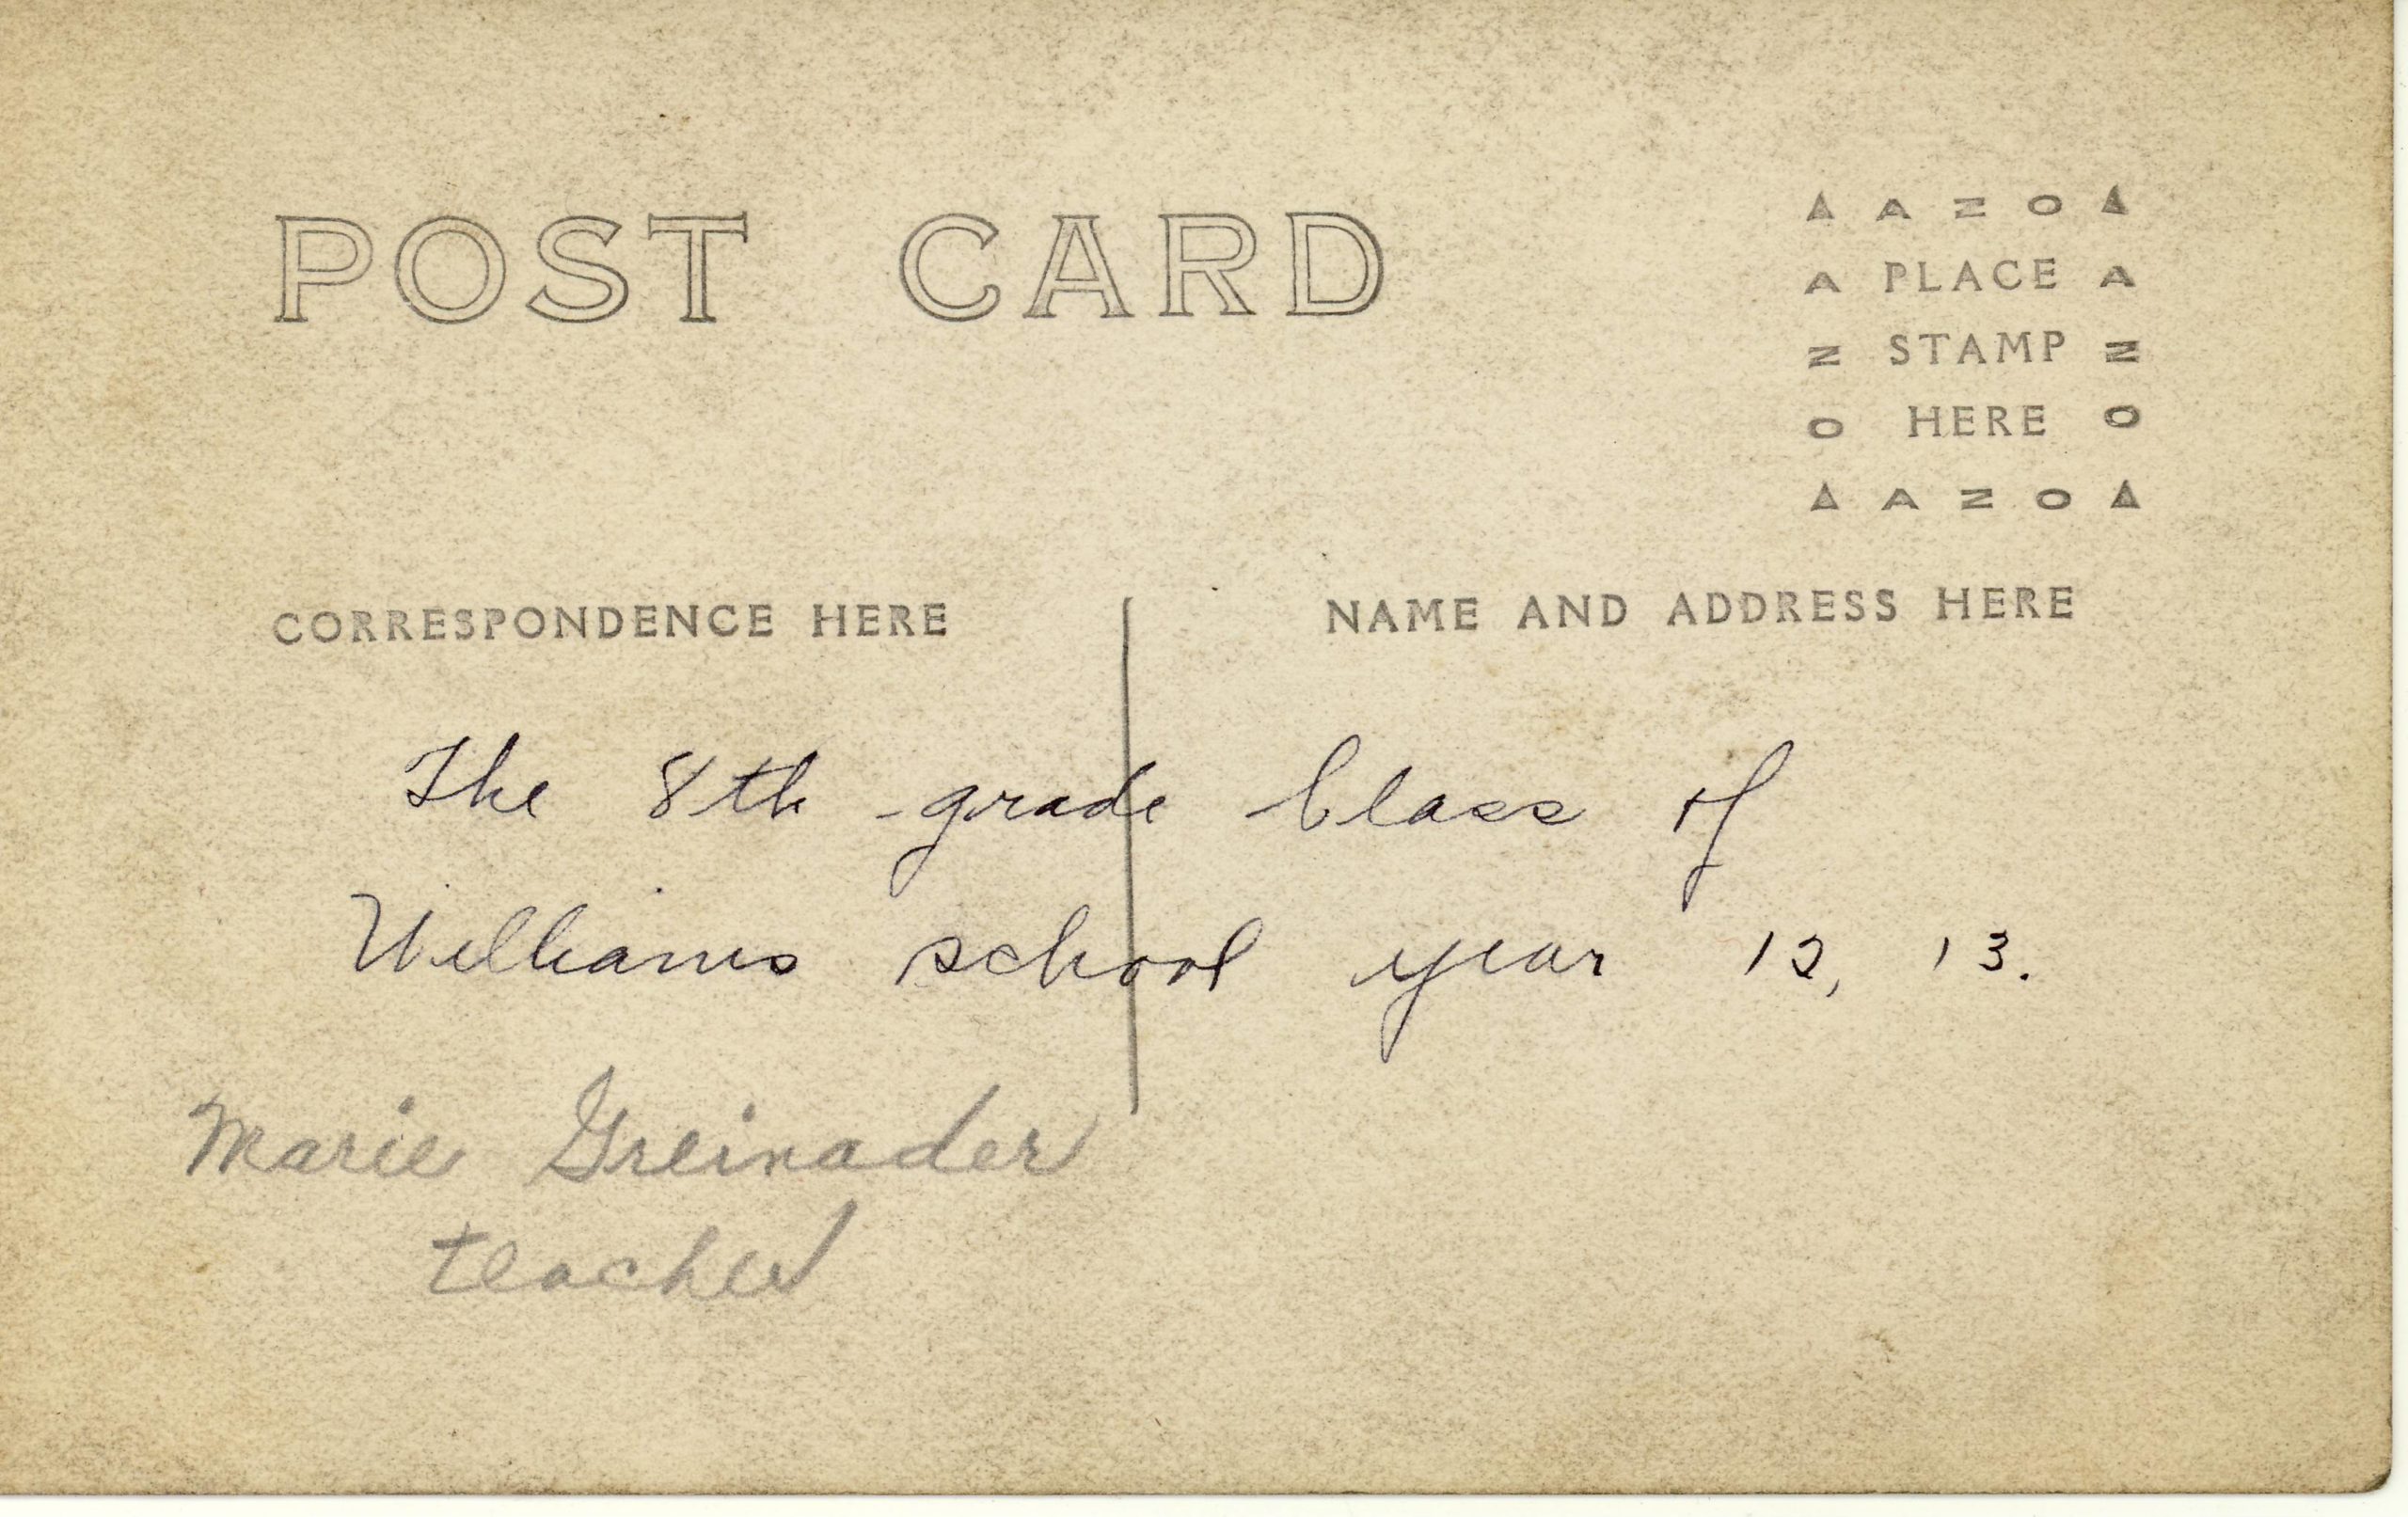 POST CARD
▲ A N O ▲
A PLACE A
N STAMP N
O HERE O
▲ A N O ▲
CORRESPONDENCE HERE
NAME AND ADDRESS HERE
The 8th grade Class of
Williams school year 12, 13.
Marie Greinader
teacher